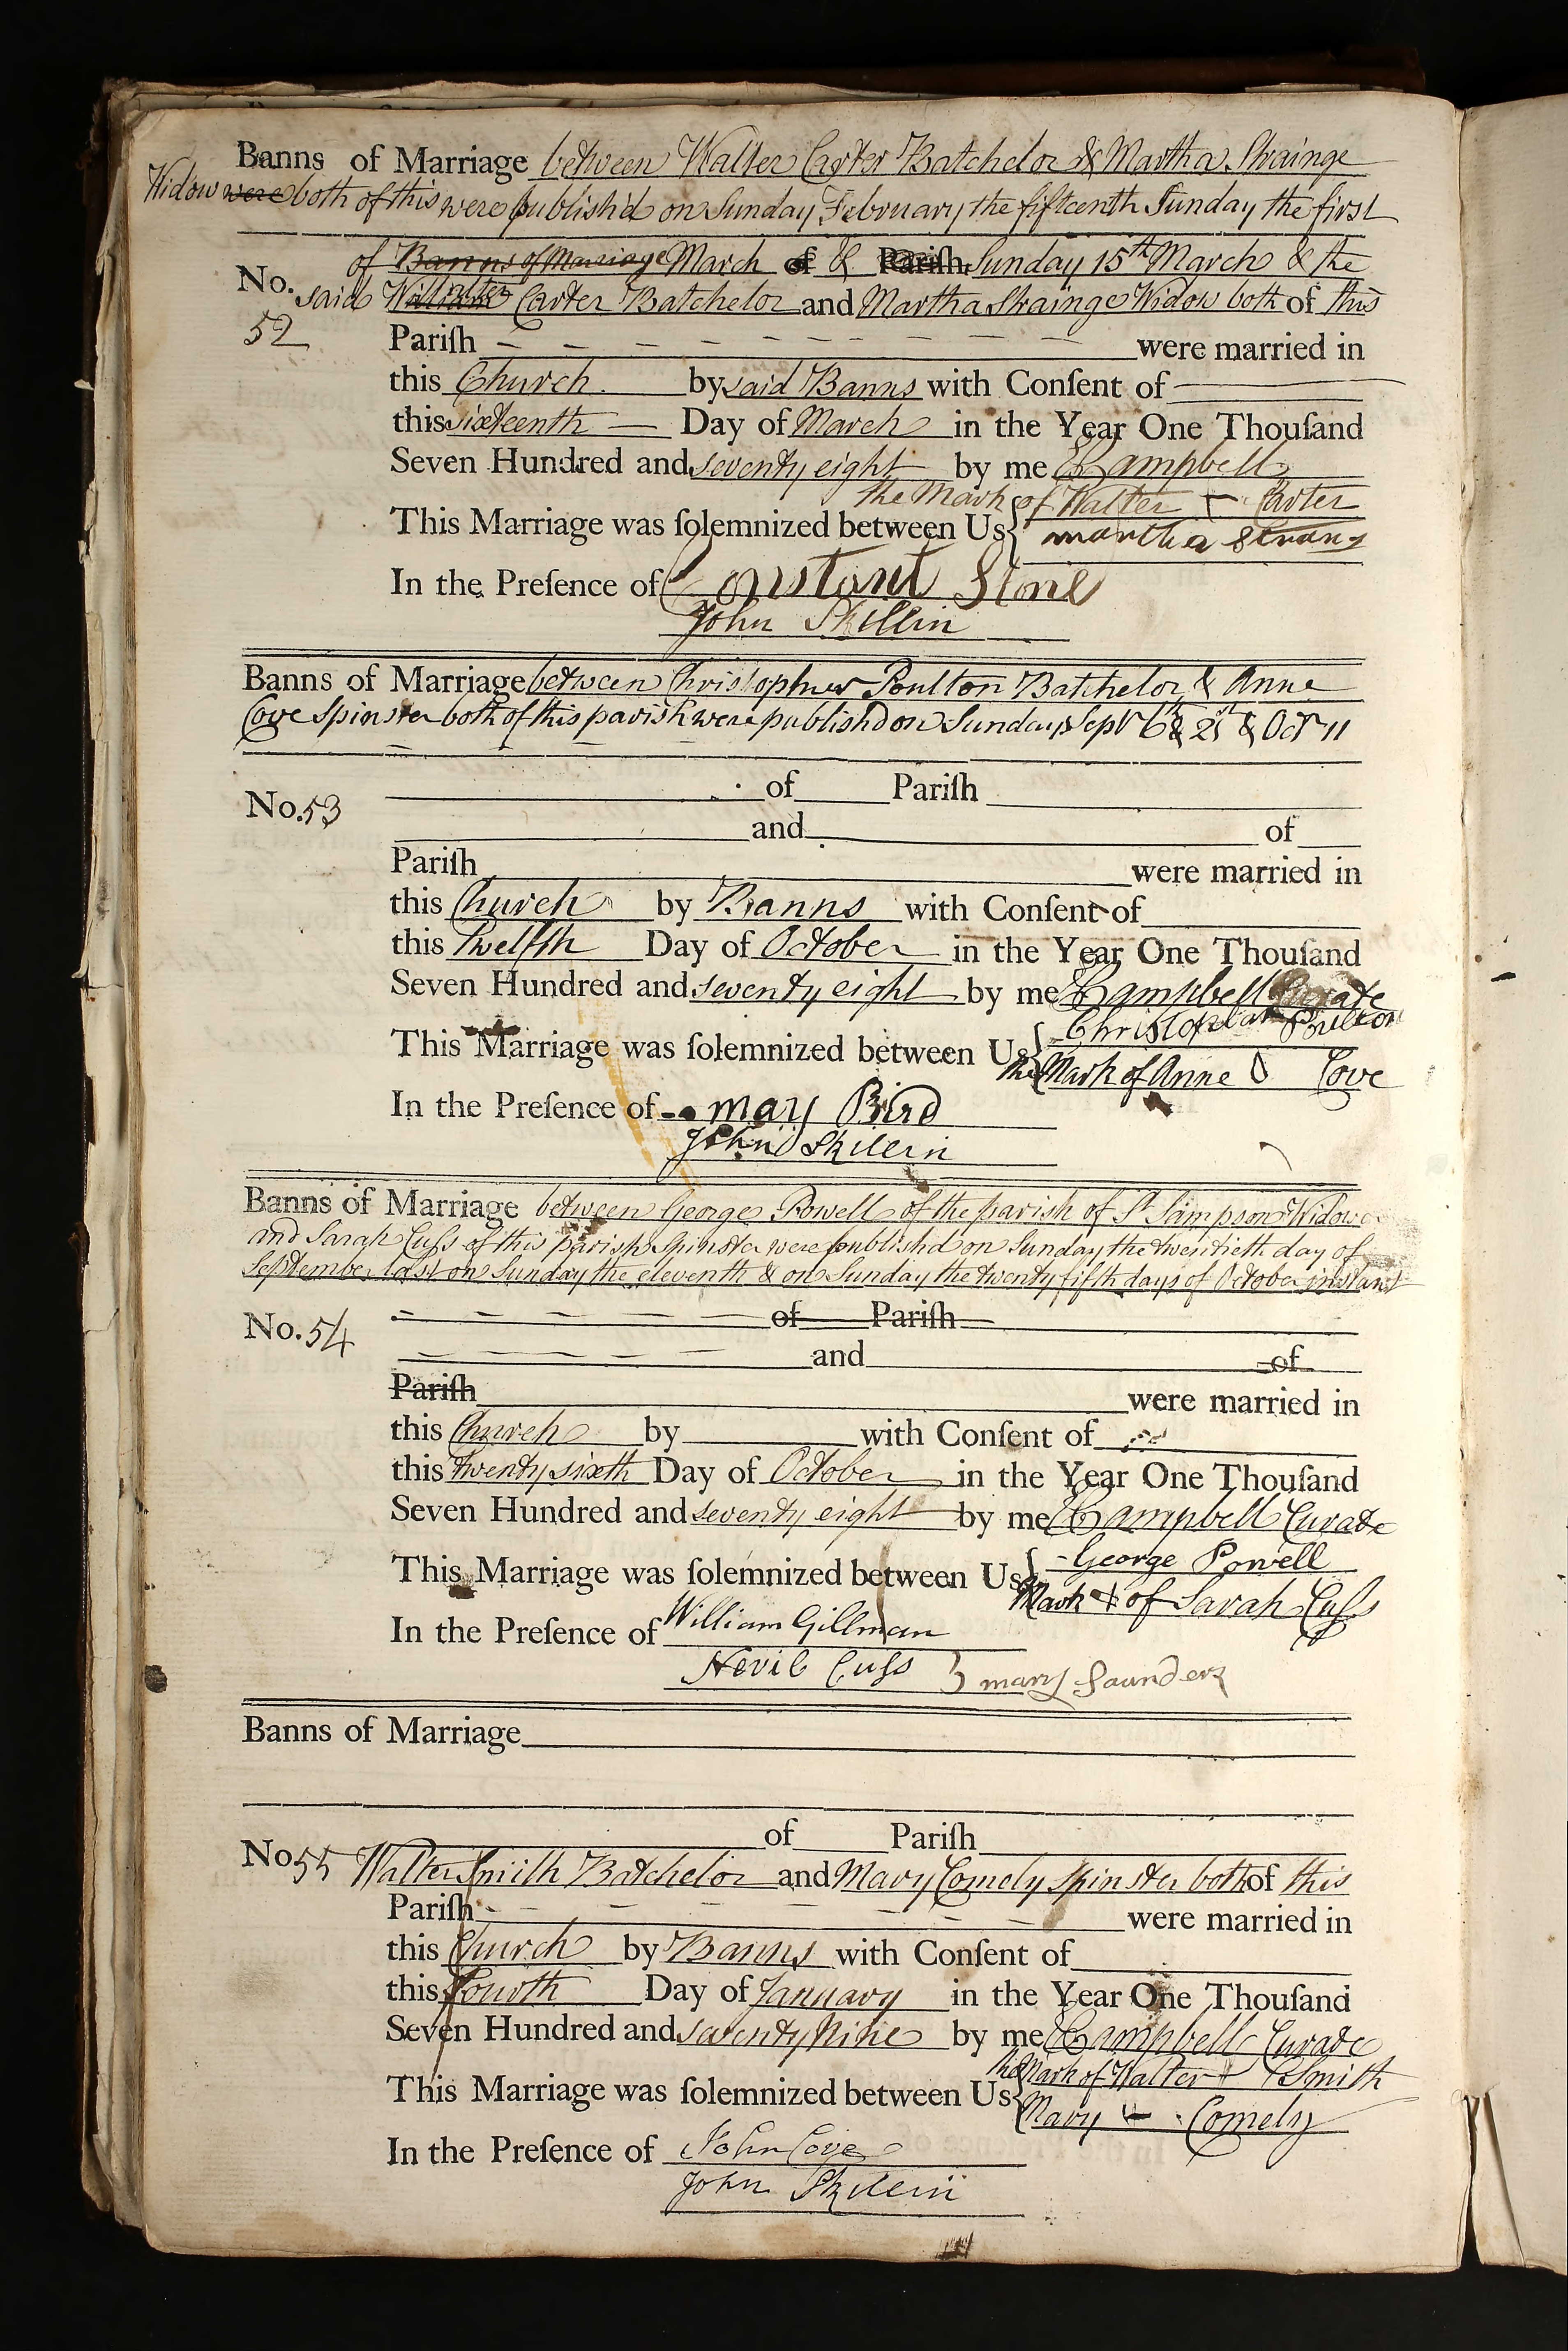 Banns of Marriage between Walter Carter Batchelor & Martha Strainge
Widow were both of this were publish'd on Sunday February the fifteenth Sunday the first
of Banns of Marriage March of & Pariſh Sunday 15th March & the
No. 52 said Walter Carter Batchelor and Martha Strainge Widow both of this
Pariſh were married in
this Church by said Banns with Conſent of
this sixteenth Day of March in the Year One Thouſand
Seven Hundred and seventy eight by me Campbell
the Mark of Walter + Carter
This Marriage was ſolemnized between Us martha Strang
In the Preſence of Constant Stone
John Skillin
Banns of Marriage between Christopher Poulton Batchelor & Anne
Cove Spinster both of this parish were publishd on Sundays Sepr 6 & 2 & Octr 11
of Pariſh
No. 53
and of
Pariſh were married in
this Church by Banns with Conſent of
this Twelfth Day of October in the Year One Thouſand
Seven Hundred and seventy eight by me Campbell Curate
Christopher Poulton
This Marriage was ſolemnized between Us
the Mark of Anne O Cove
In the Preſence of may Bird
John Skilein
Banns of Marriage between George Powell of the parish of St Sampson Widow
and Sarah Cuſs of this parish Spinster were publishd on Sunday the twentieth day of
September last on Sunday the eleventh & on Sunday the twenty fifth days of October instant
of Pariſh
No. 54
and of
Pariſh were married in
this Church by with Conſent of
this twenty sixth Day of October in the Year One Thouſand
Seven Hundred and seventy eight by me Campbell Curate
George Powell
This Marriage was ſolemnized between Us
Mark + of Sarah Cuſs
In the Preſence of William Gillman
Nevil Cuſs mary Saunders
Banns of Marriage
of Pariſh
No 55 Walter Smith Batchelor and Mary Comely Spinster both of this
Pariſh were married in
this Church by Banns with Conſent of
this fourth Day of January in the Year One Thouſand
Seven Hundred and seventy Nine by me Campbell Curate
the Mark of Walter + Smith
This Marriage was ſolemnized between Us
Mary + Comely
In the Preſence of John Cove
John Skilein